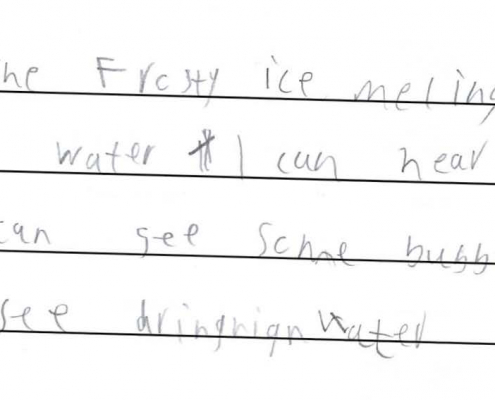 he Frosty ice meling
water # I can hear
can see some bubb
see dringnign water